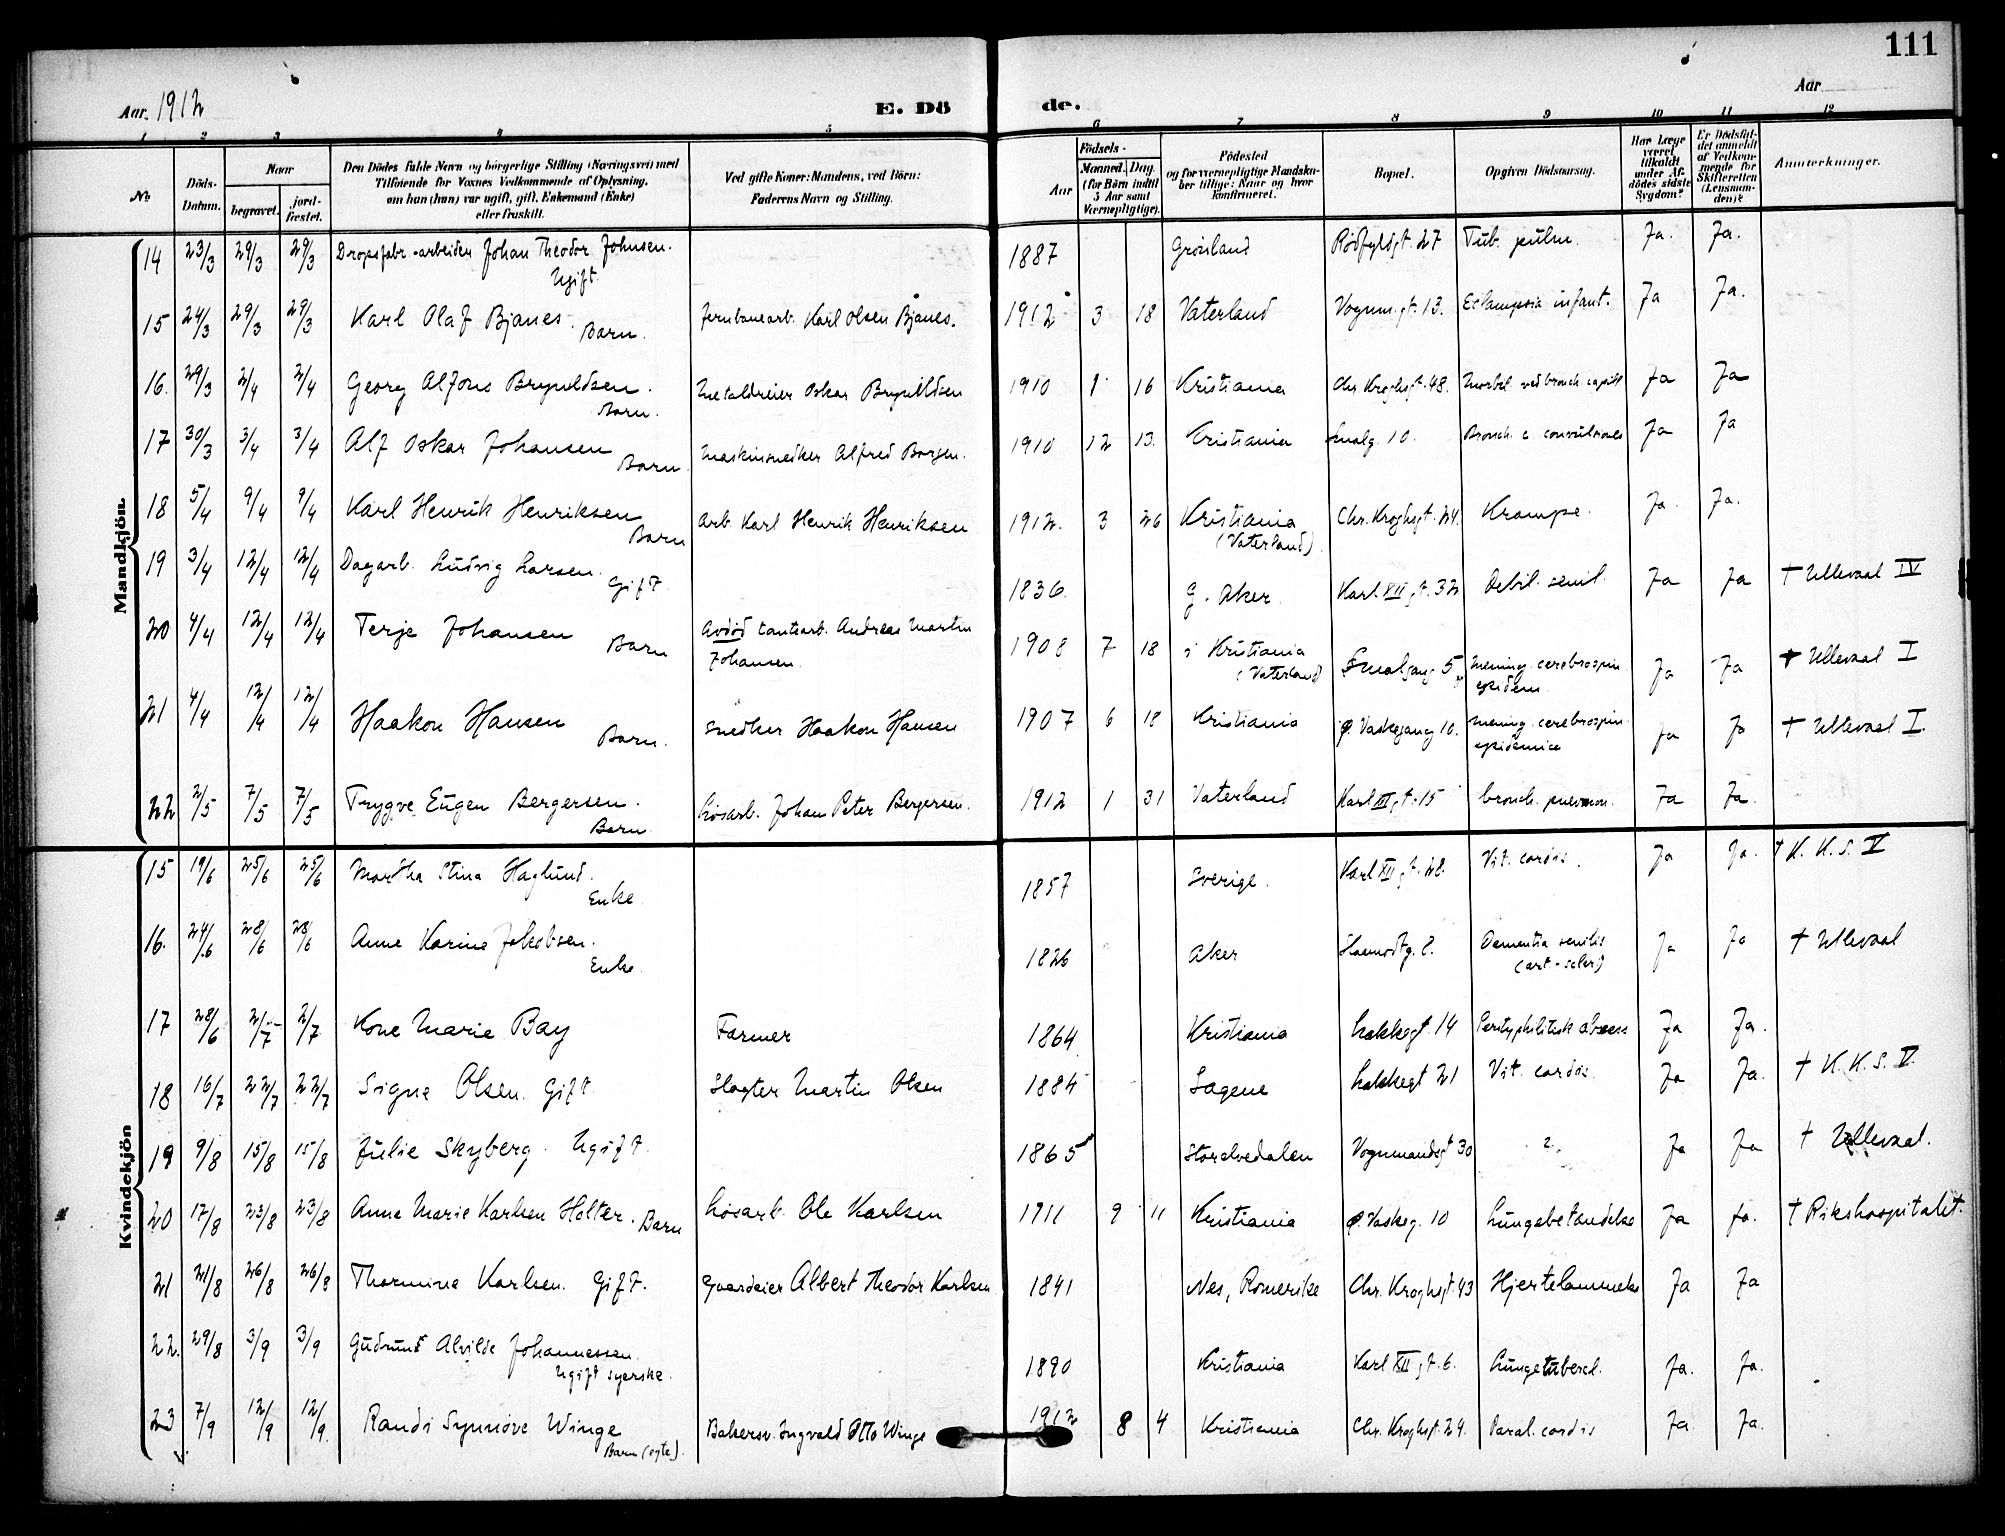 111
Aar 1912
E. Dö
de.
Aar
1 2 3 4 5 6 7 8 9 10 11 12
No
Döds-Datum.
Naar
begravet.
jordfæstet.
Den Dödes fulde Navn og borgerlige Stilling (Næringsvei) med
Tilföiende for Voxnes Vedkommende af Oplysning,
om han (hun) var ugift, gift, Enkemand (Enke)
eller fraskilt.
Ved gifte Koner: Mandens, ved Börn:
Faderens Navn og Stilling.
Födsels-
Aar
Maaned. Dag.
(for Börn indtil 5 Aar samt Værnepligtige).
Födested
og for værnepligtige Mandskaber tillige: Naar og hvor konfirmeret.
Bopæl.
Opgiven Dödsaarsag.
Har Læge været tilkaldt under Afdödes sidste Sygdom?
Er Dödsfaldet anmeldt af Vedkommende for Skifteretten (Lensmanden)?
Anmærkninger.
Mandkjön
14 23/3 29/3 29/3 Dropsfabr.-arbeider Johan Theodor Johnsen. Ugift. 1887 Grønland Rødfyldgt. 27 Tub. pulm. Ja. Ja.
15 24/3 29/3 29/3 Karl Olaf Bjanes. Barn. Jernbanearb. Karl Olsen Bjanes. 1912 3 18 Vaterland Vognm.gt. 13. Eclampsia infant. Ja Ja.
16. 29/3 2/4 2/4 Georg Alfons Brynildsen. Barn. Metaldreier Oskar Brynildsen 1910 1 16 Kristiania Chr. Kroghsgt. 48. Morbil. ved bronch. capill Ja Ja
17 30/3 3/4 3/4 Alf Oskar Johansen Barn. Maskinsnedker Alfred Borgen. 1910 12 13. Kristiania Smalg. 10. Bronch. c. convulsiones Ja Ja
18 5/4 9/4 9/4 Karl Henrik Henriksen Barn Arb. Karl Henrik Henriksen 1912. 3 26 Kristiania (Vaterland) Chr. Kroghsgt. 24. Krampe. Ja. Ja.
19 3/4 12/4 12/4 Dagarb. Ludvig Larsen. Gift. 1836. G. Aker Karl XII gt. 32 Debil. senil. Ja Ja † Ullevaal IV
20 4/4 12/4 12/4 Terje Johansen Barn Avdød tomtearb. Andreas Martin Johansen. 1908 7 18 Kristiania (Vaterland) Smalgang 5 Mening. cerebrospin. epidem. Ja Ja † Ullevaal I
21 4/4 12/4 12/4 Haakon Hansen Barn. Snedker Haakon Hansen 1907 6 18 Kristiania Ø. Vaskegang 10. Mening. cerebrospin. epidemica Ja Ja † Ullevaal I.
22 2/5 7/5 7/5 Trygve Eugen Bergersen. Barn. Løsarb. Johan Peter Bergersen. 1912 1 31 Vaterland Karl XII gt. 15 bronch. pnevmon. Ja Ja.
Kvindekjön
15 19/6 25/6 25/6 Martha Stina Haglund. Enke 1857 Sverige. Karl XII gt. 28. Vit. cordis. Ja Ja. † K. K. S. V
16. 24/6 28/6 28/6 Anne Karine Jakobsen. Enke. 1826 Aker Dementia senilis (art.-scler.) Ja Ja † Ullevaal
17 28/6 2/7 2/7 Kone Marie Bay Farmer 1864 Kristiania Lakkegt 14 Perityphlitisk absces Ja Ja.
18 16/7 22/7 22/7 Signe Olsen. Gift. Slagter Martin Olsen 1884 Sagene Lakkegt 21 Vit. cordis. Ja Ja. † K. K. S. V.
19 9/8 15/8 15/8 Julie Skyberg. Ugift. 1865 Storelvedalen Vognmandsgt 30 ? Ja Ja † Ullevaal.
20 17/8 23/8 23/8 Anne Marie Karlsen Holter. Barn Løsarb. Ole Karlsen 1911 9 11 Kristiania Ø. Vaskeg. 10 Lungebetændelse Ja Ja. † Rikshospitalet.
21 21/8 26/8 26/8 Thormine Karlsen. Gift. Gvardeier Albert Theodor Karlsen 1841 Nes, Romerike Chr. Kroghsgt. 43 Hjertelammelse Ja Ja
22. 29/8 3/9 3/9 Gudrund Alvilde Johannessen. Ugift syerske. 1890 Kristiania Karl XII gt. 6. Lungetubercl. Ja. Ja.
23 7/9 12/9 12/9. Randi Synnøve Winge Barn (egte). Bakersv. Ingvald Otto Winge 1912 8 4 Kristiania Chr. Kroghsgt. 24. Paral. cordis Ja. Ja.